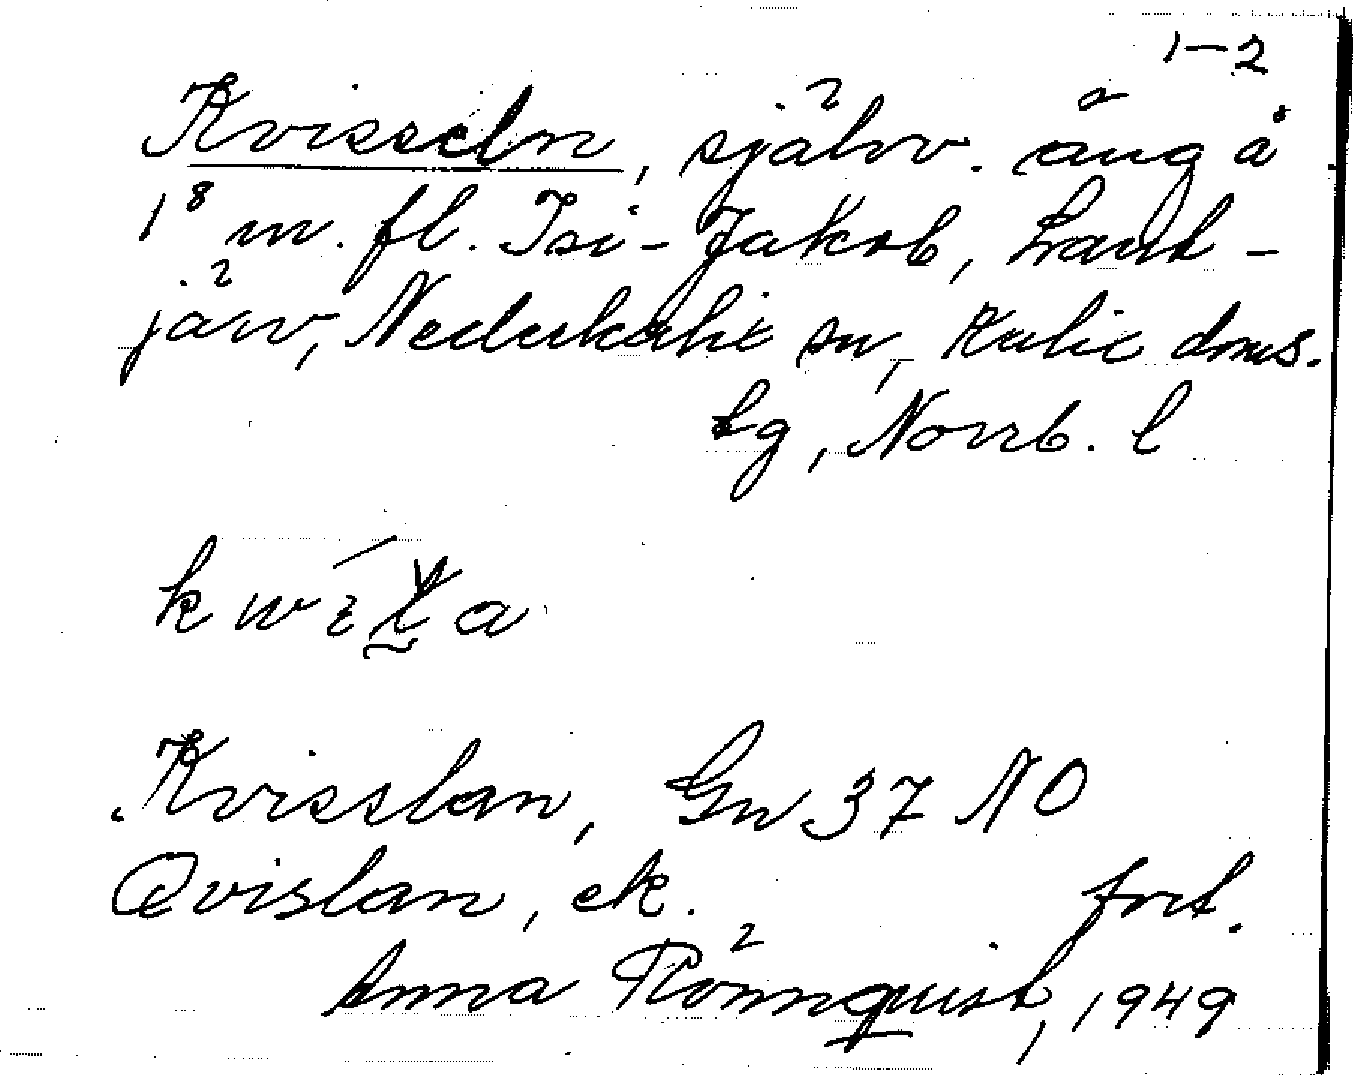 1-2
Kvisseln, självv. äng å
1⁸ m. fl. Isi-Jakob, Lant-
järv, Nederkalix sn, Kalix doms.
lg, Norrb. l
Kvisslan, Gn 37 NO
Qvislan, ek. fort.
Anna Rönnquist, 1949